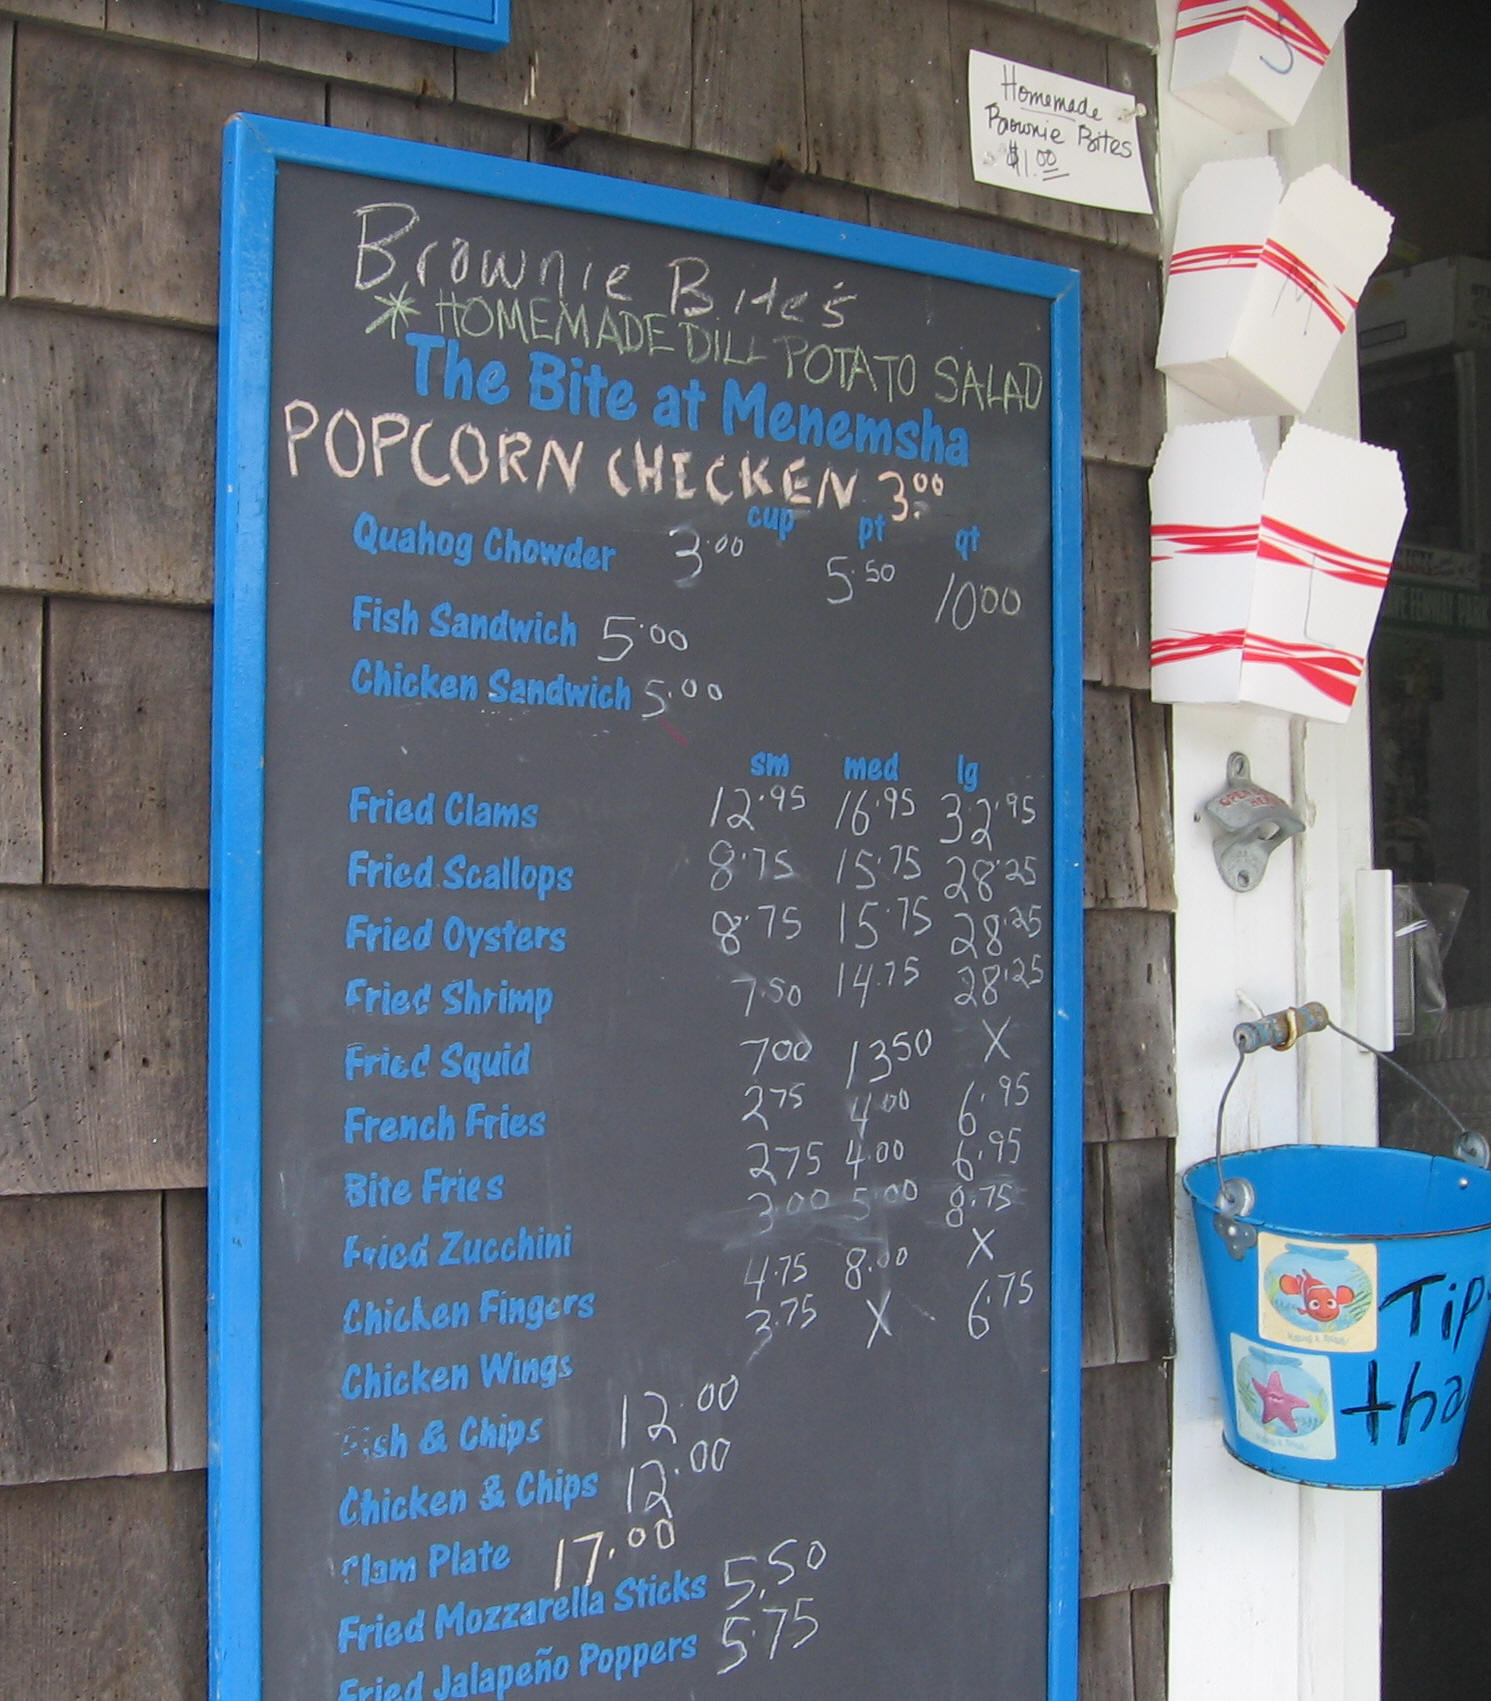 Homemade
Brownie Bites
$1.00
Brownie Bite's
* HOMEMADE DILL POTATO SALAD
The Bite at Menemsha
POPCORN CHICKEN 3.00
cup pt qt
Quahog Chowder 3.00 5.50 10.00
Fish Sandwich 5.00
Chicken Sandwich 5.00
sm med lg
Fried Clams 12.95 16.95 32.95
Fried Scallops 8.75 15.75 28.25
Fried Oysters 8.75 15.75 28.25
Fried Shrimp 7.50 14.75 28.25
Fried Squid 700 1350 X
French Fries 275 400 6.95
Bite Fries 275 4.00 6.95
Fried Zucchini 3.00 5.00 8.75
Chicken Fingers 4.75 8.00 X
Chicken Wings 3.75 X 6.75
Fish & Chips 12.00
Chicken & Chips 12.00
Clam Plate 17.00
Fried Mozzarella Sticks 5.50
Fried Jalapeño Poppers 5.75
S
M
L
OPEN HERE
FENWAY PARK
Tip
tha